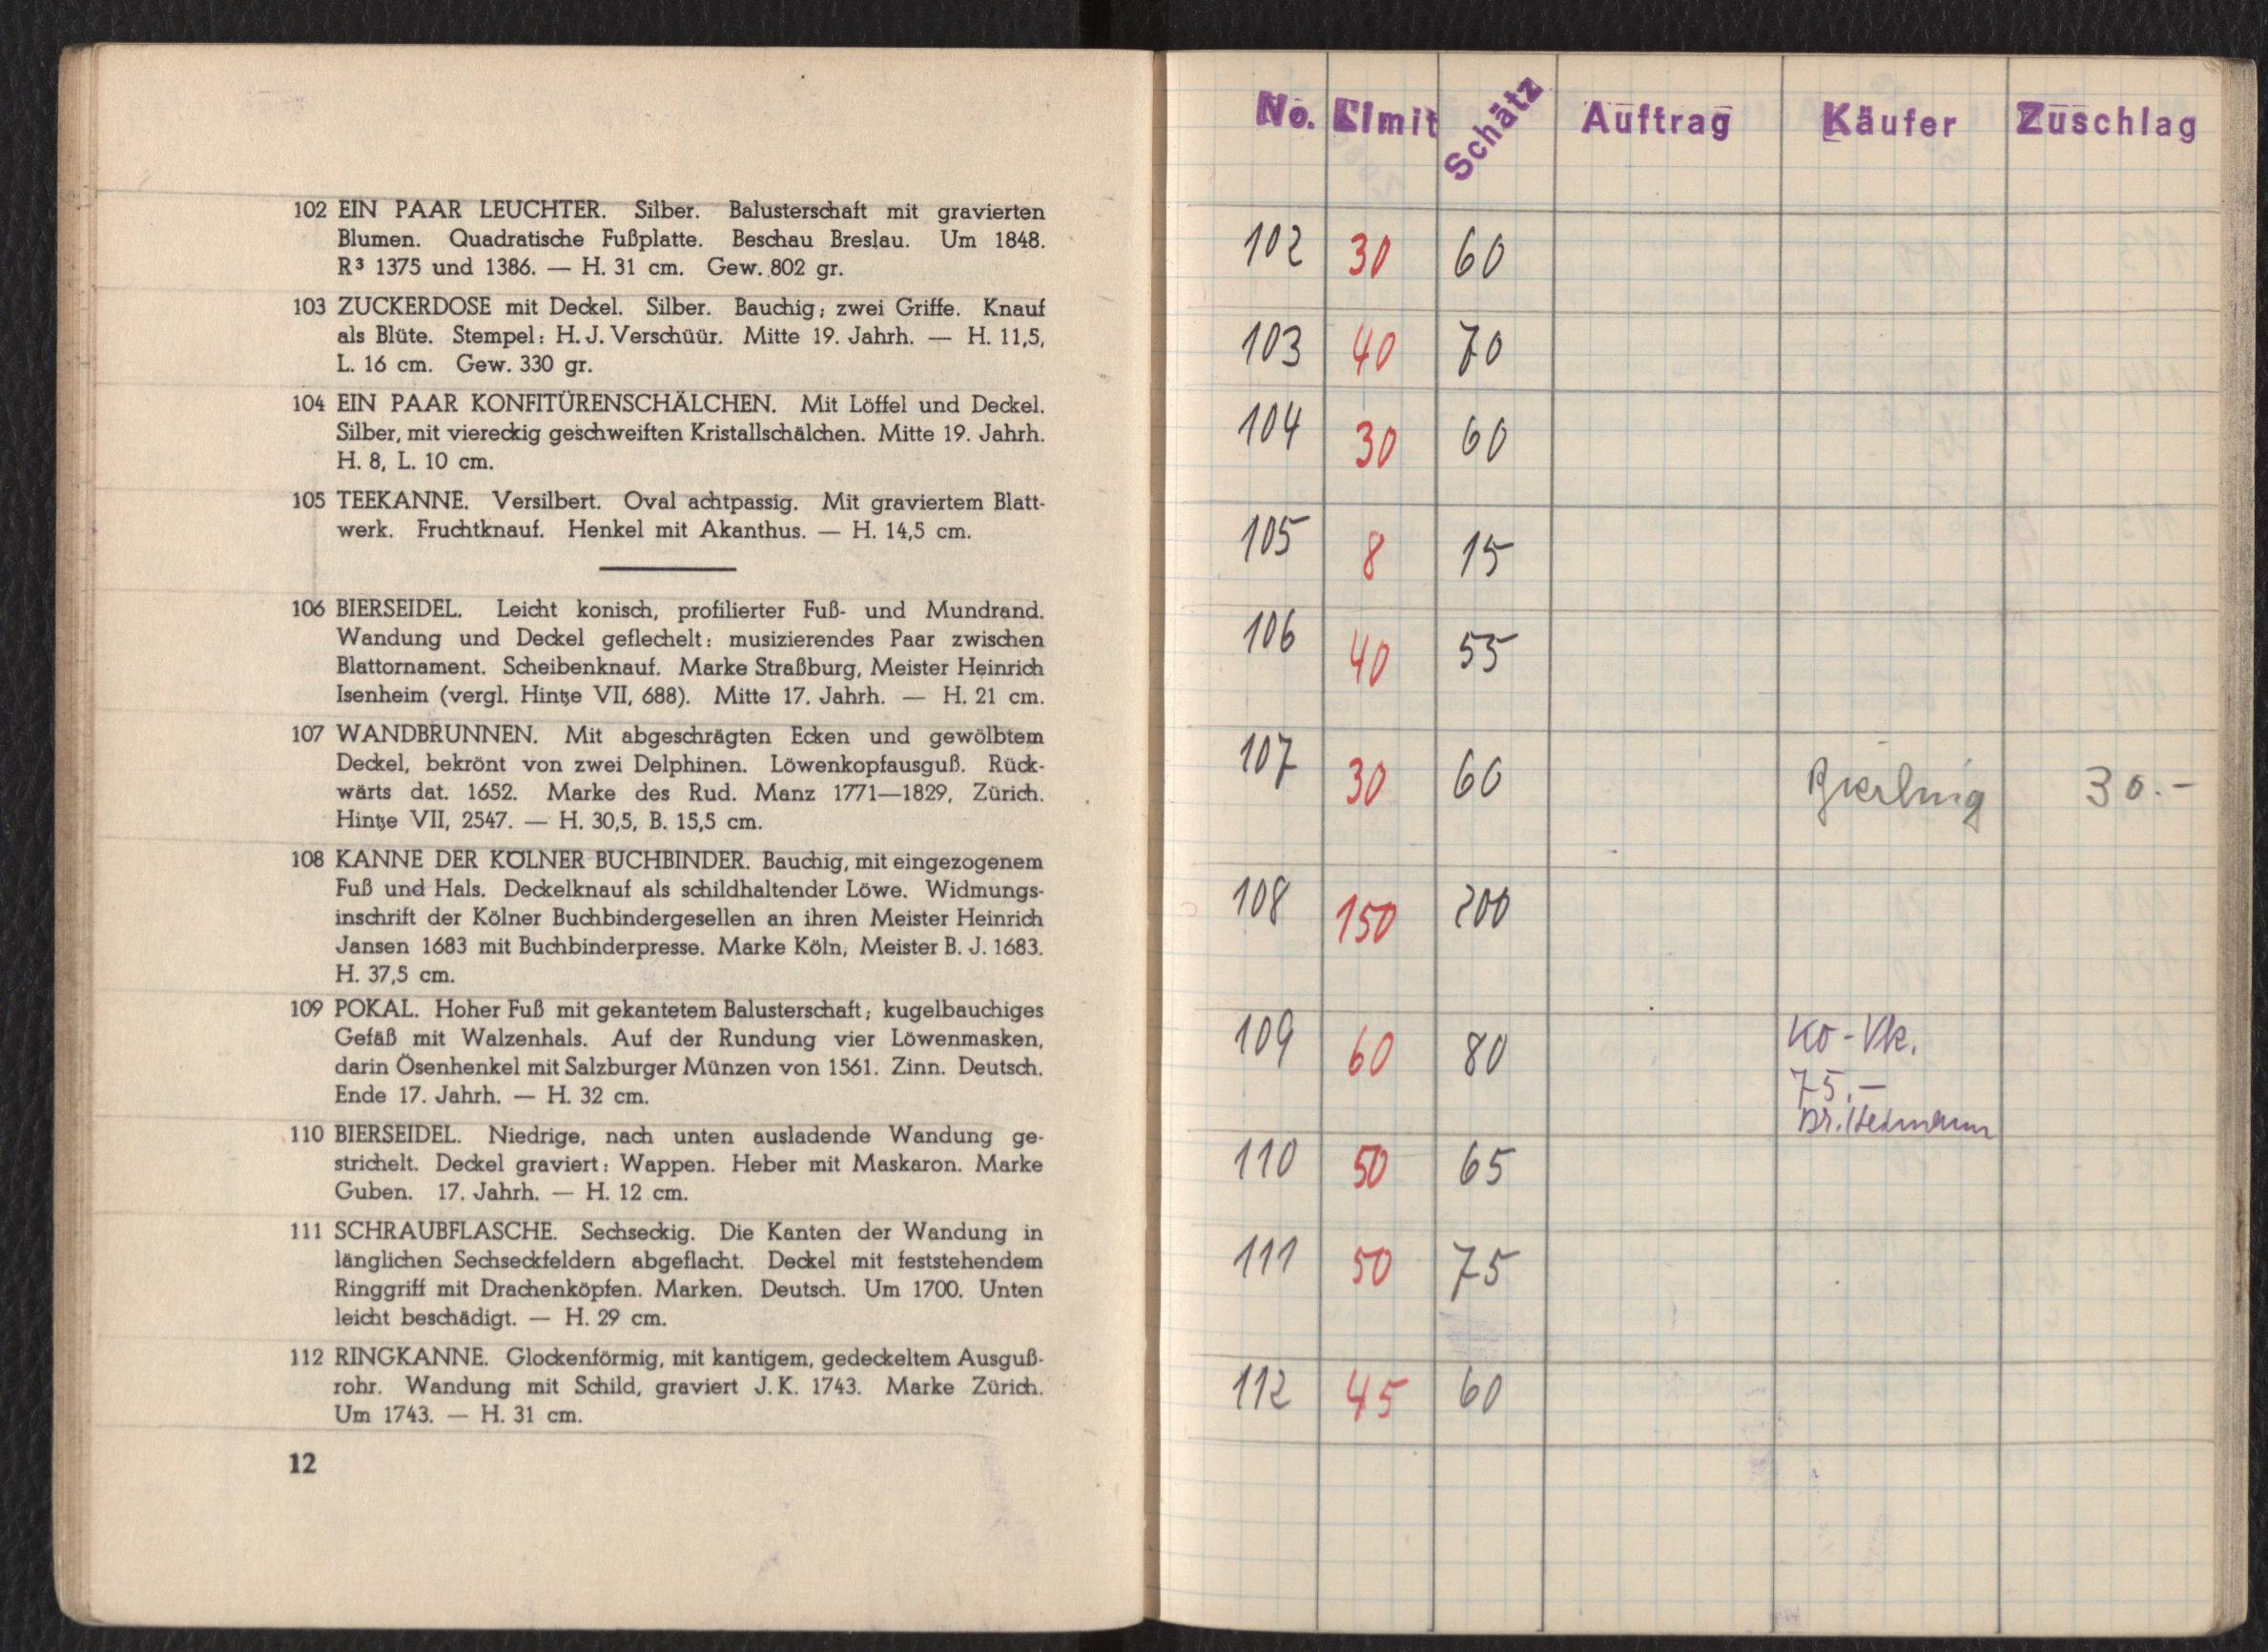 102 EIN PAAR LEUCHTER. Silber. Balusterschaft mit gravierten
Blumen. Quadratische Fußplatte. Beschau Breslau. Um 1848.
R³ 1375 und 1386. — H. 31 cm. Gew. 802 gr.
103 ZUCKERDOSE mit Deckel. Silber. Bauchig; zwei Griffe. Knauf
als Blüte. Stempel: H. J. Verschüür. Mitte 19. Jahrh. — H. 11,5,
L. 16 cm. Gew. 330 gr.
104 EIN PAAR KONFITÜRENSCHÄLCHEN. Mit Löffel und Deckel.
Silber, mit viereckig geschweiften Kristallschälchen. Mitte 19. Jahrh.
H. 8, L. 10 cm.
105 TEEKANNE. Versilbert. Oval achtpassig. Mit graviertem Blatt-
werk. Fruchtknauf. Henkel mit Akanthus. — H. 14,5 cm.
106 BIERSEIDEL. Leicht konisch, profilierter Fuß- und Mundrand.
Wandung und Deckel geflechelt: musizierendes Paar zwischen
Blattornament. Scheibenknauf. Marke Straßburg, Meister Heinrich
Isenheim (vergl. Hintze VII, 688). Mitte 17. Jahrh. — H. 21 cm.
107 WANDBRUNNEN. Mit abgeschrägten Ecken und gewölbtem
Deckel, bekrönt von zwei Delphinen. Löwenkopfausguß. Rück-
wärts dat. 1652. Marke des Rud. Manz 1771—1829, Zürich.
Hintze VII, 2547. — H. 30,5, B. 15,5 cm.
108 KANNE DER KÖLNER BUCHBINDER. Bauchig, mit eingezogenem
Fuß und Hals. Deckelknauf als schildhaltender Löwe. Widmungs-
inschrift der Kölner Buchbindergesellen an ihren Meister Heinrich
Jansen 1683 mit Buchbinderpresse. Marke Köln, Meister B. J. 1683.
H. 37,5 cm.
109 POKAL. Hoher Fuß mit gekantetem Balusterschaft; kugelbauchiges
Gefäß mit Walzenhals. Auf der Rundung vier Löwenmasken,
darin Ösenhenkel mit Salzburger Münzen von 1561. Zinn. Deutsch.
Ende 17. Jahrh. — H. 32 cm.
110 BIERSEIDEL. Niedrige, nach unten ausladende Wandung ge-
strichelt. Deckel graviert: Wappen. Heber mit Maskaron. Marke
Guben. 17. Jahrh. — H. 12 cm.
111 SCHRAUBFLASCHE. Sechseckig. Die Kanten der Wandung in
länglichen Sechseckfeldern abgeflacht. Deckel mit feststehendem
Ringgriff mit Drachenköpfen. Marken. Deutsch. Um 1700. Unten
leicht beschädigt. — H. 29 cm.
112 RINGKANNE. Glockenförmig, mit kantigem, gedeckeltem Ausguß-
rohr. Wandung mit Schild, graviert J. K. 1743. Marke Zürich.
Um 1743. — H. 31 cm.
12
No. Limit Schätz Auftrag Käufer Zuschlag
102 30 60
103 40 70
104 30 60
105 8 15
106 40 55
107 30 60 30.-
108 150 200
109 60 80 Ko-Vk.
75.-
Dr.
110 50 65
111 50 75
112 45 60